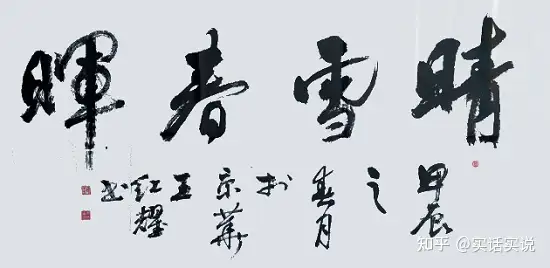 晴雪春暉
甲辰之春月於京華王紅耀书
知乎 @实话实说